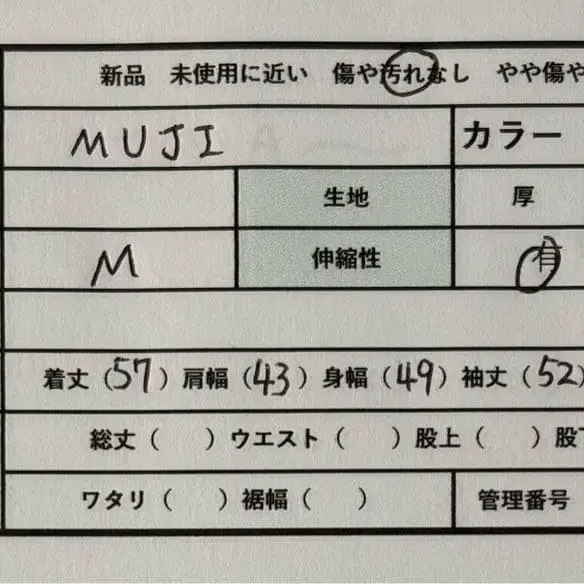 新品 未使用に近い 傷や汚れなし やや傷や
MUJI カラー
生地 厚
M 伸縮性 有
着丈（57）肩幅（43）身幅（49）袖丈（52）
総丈（ ）ウエスト（ ）股上（ ）股下
ワタリ（ ）裾幅（ ） 管理番号